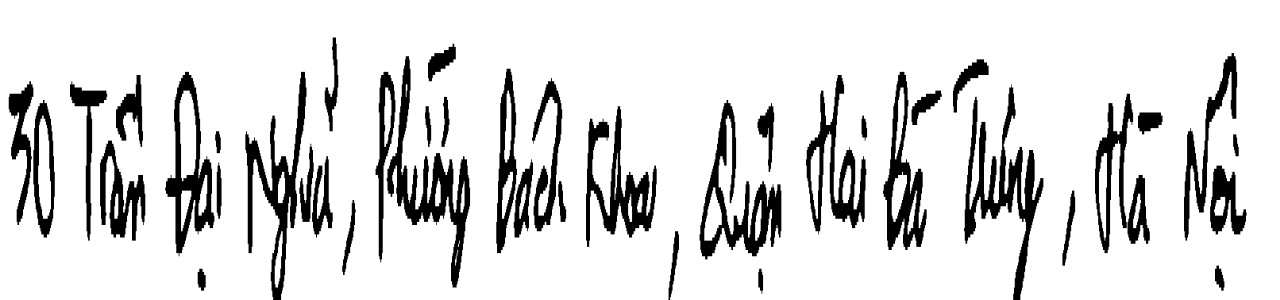 30 Trần Đại Nghĩa, Phường Bách Khoa, Quận Hai Bà Trưng, Hà Nội